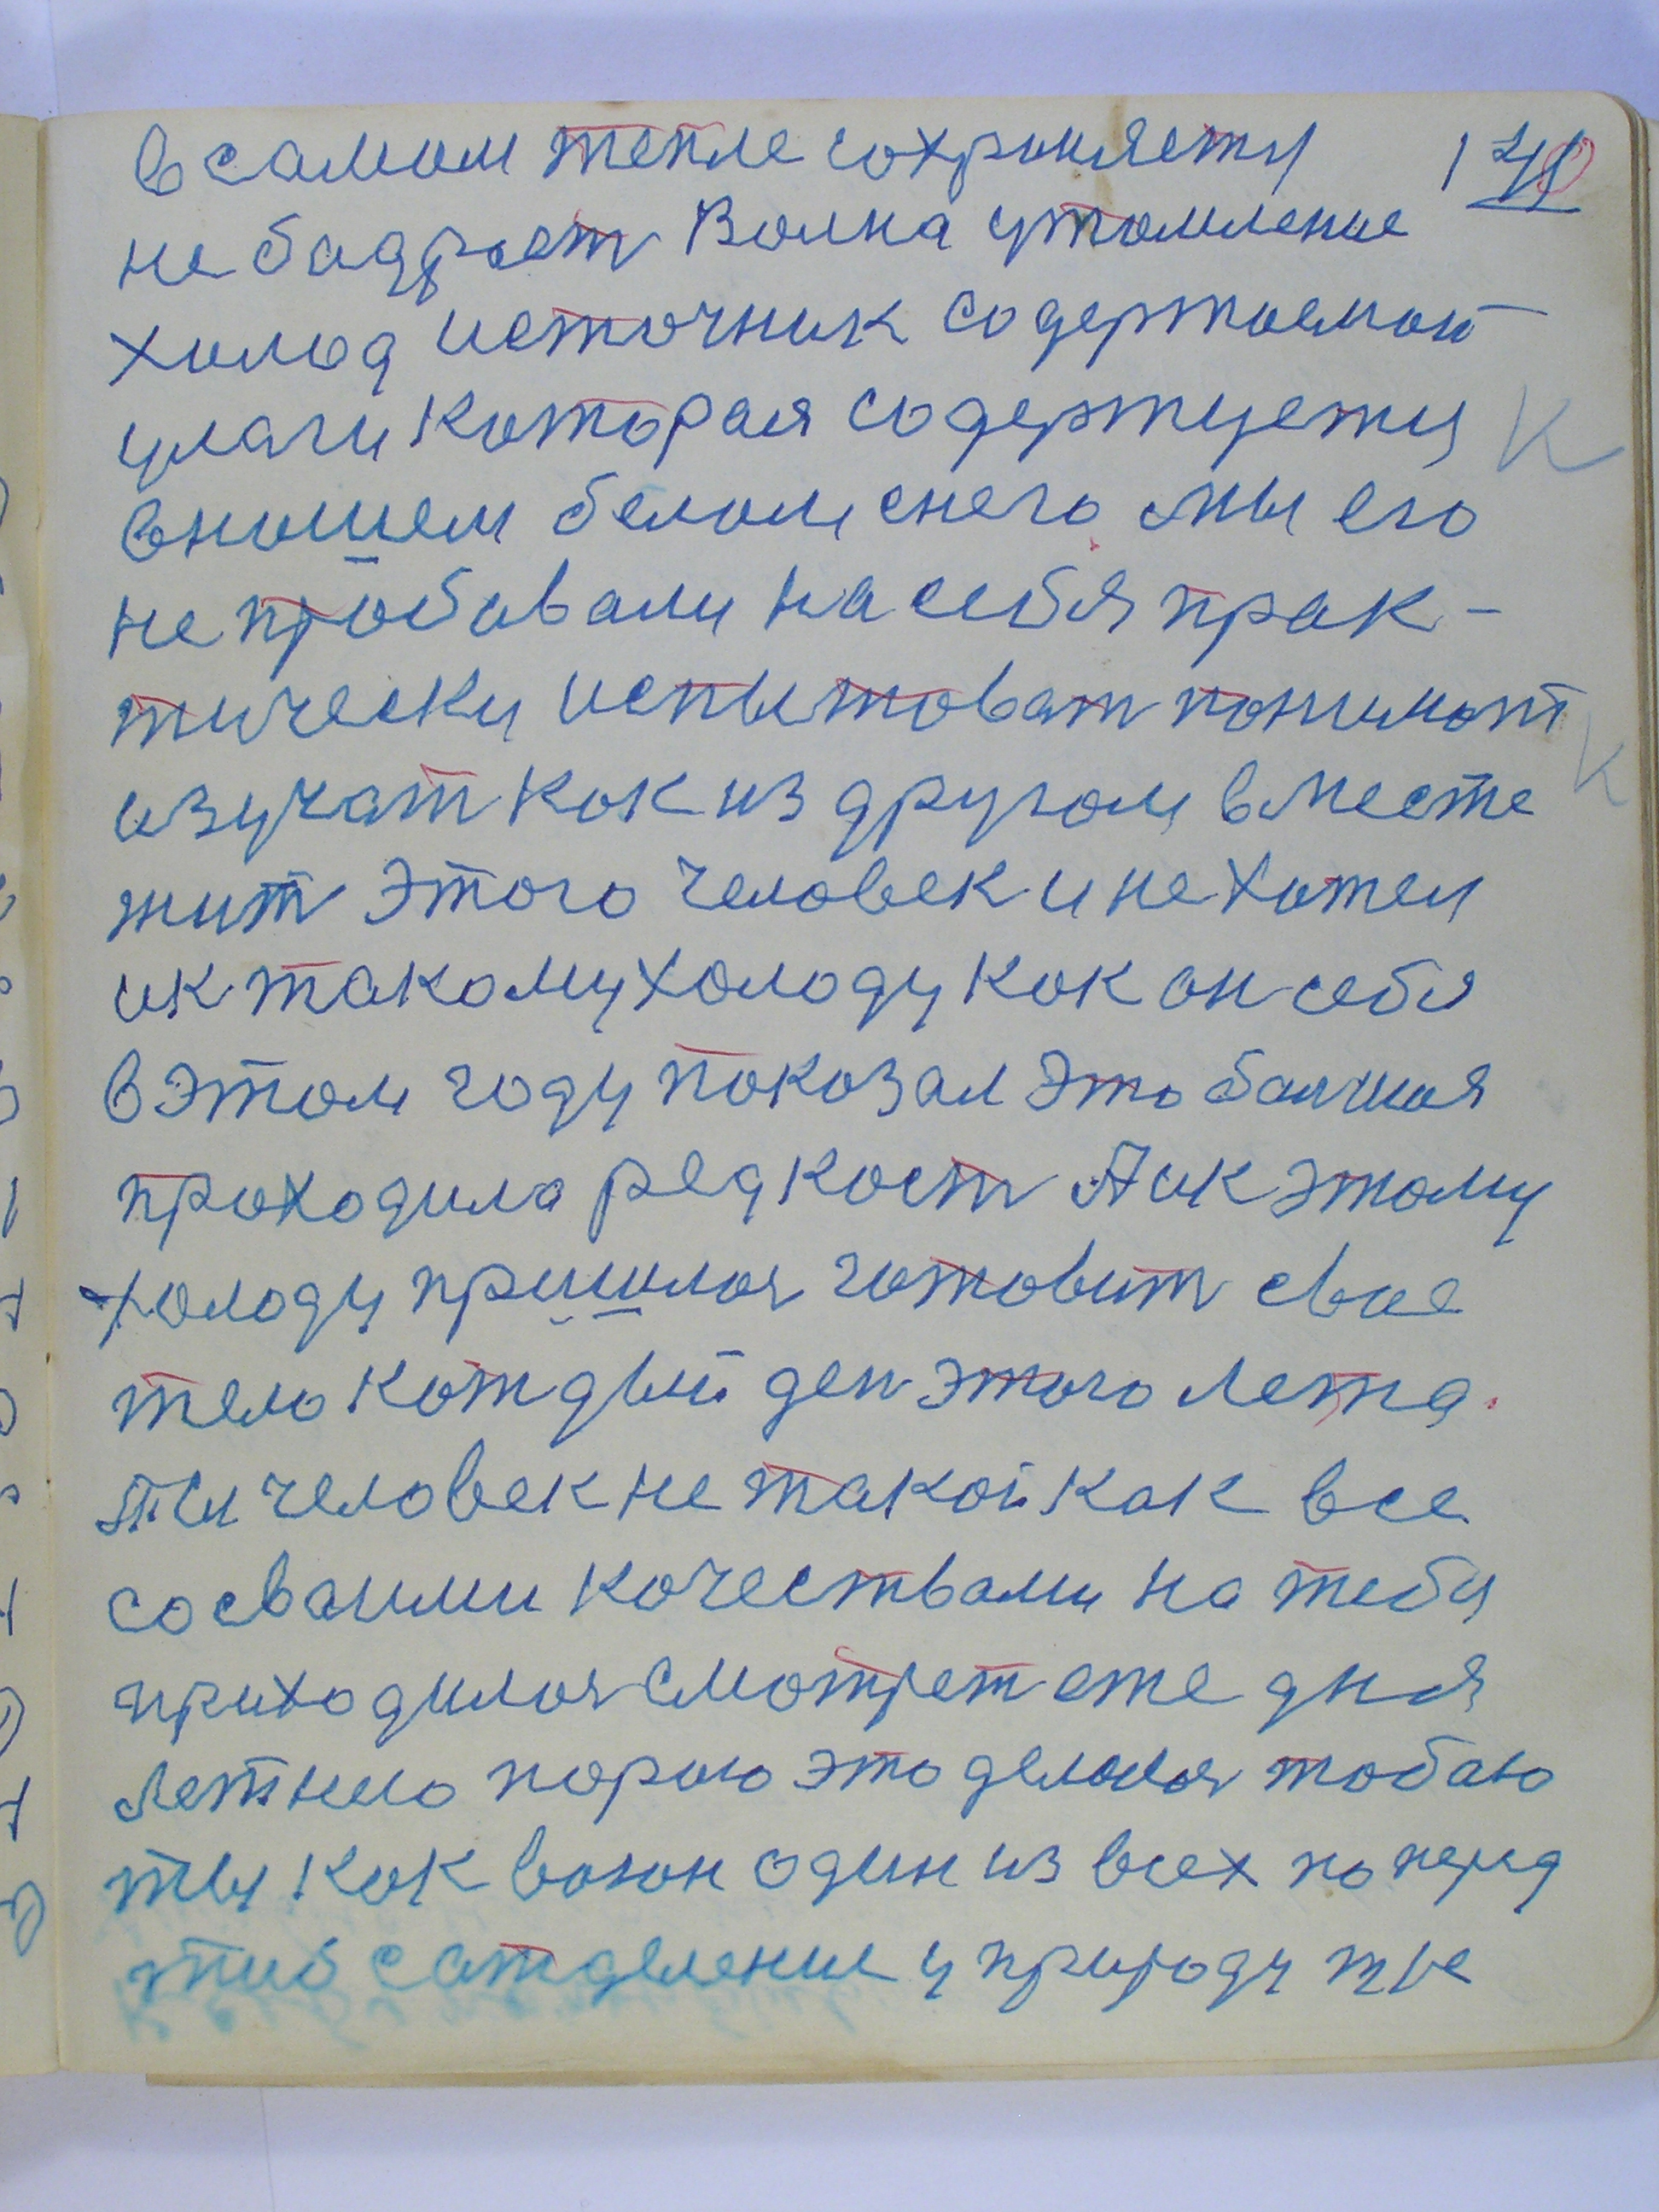 в самом тепле сохроняетя
не бадрост Волна утомление
холод источник содержаемой
улаги которая содержуетця
в нашем белом снего мы его
не пробовали на себя прак-
тически испытоват понимат
изучат как из другом в месте
жит этого человек и не хотел
и к такому холоду как он себя
в этом году показал это болшая
проходила редкост А и к этому
холоду пришлоя готовит свое
тело котдый ден этого лета.
ты человек не такой как все
со сваими кочествами на тебя
приходилоя смотрет еже дня
летнею порою это делолоя тобаю
ты как воион один из всех по перед
тиб с отделение у природу тре